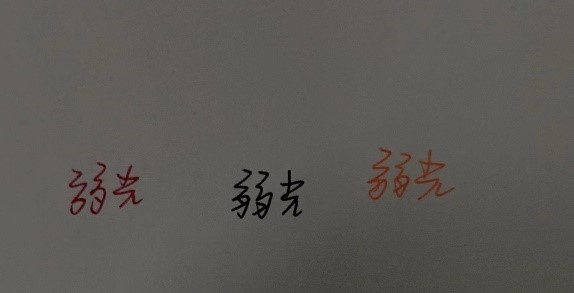 弱光 弱光 弱光